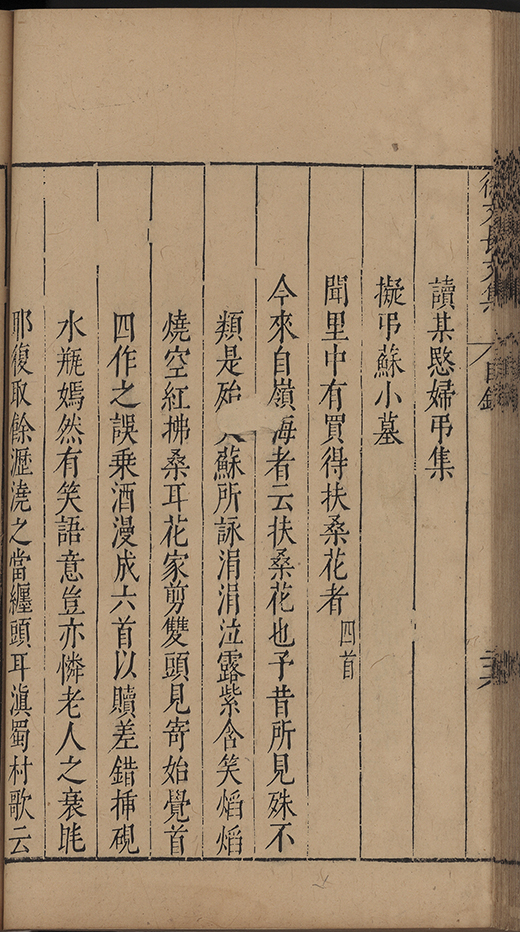 徐文長文集 目錄
讀某愍婦弔集
擬弔蘇小墓
聞里中有買得扶桑花者 四首
今來自嶺海者云扶桑花也予昔所見殊不
類是殆蘇所詠涓涓泣露紫含笑熖熖
燒空紅拂桑耳花家剪雙頭見寄始覺首
四作之誤乗酒漫成六首以贖差錯揷硯
水瓶嫣然有笑語意豈亦憐老人之衰眊
耶復取餘瀝澆之當纏頭耳滇蜀村歌云